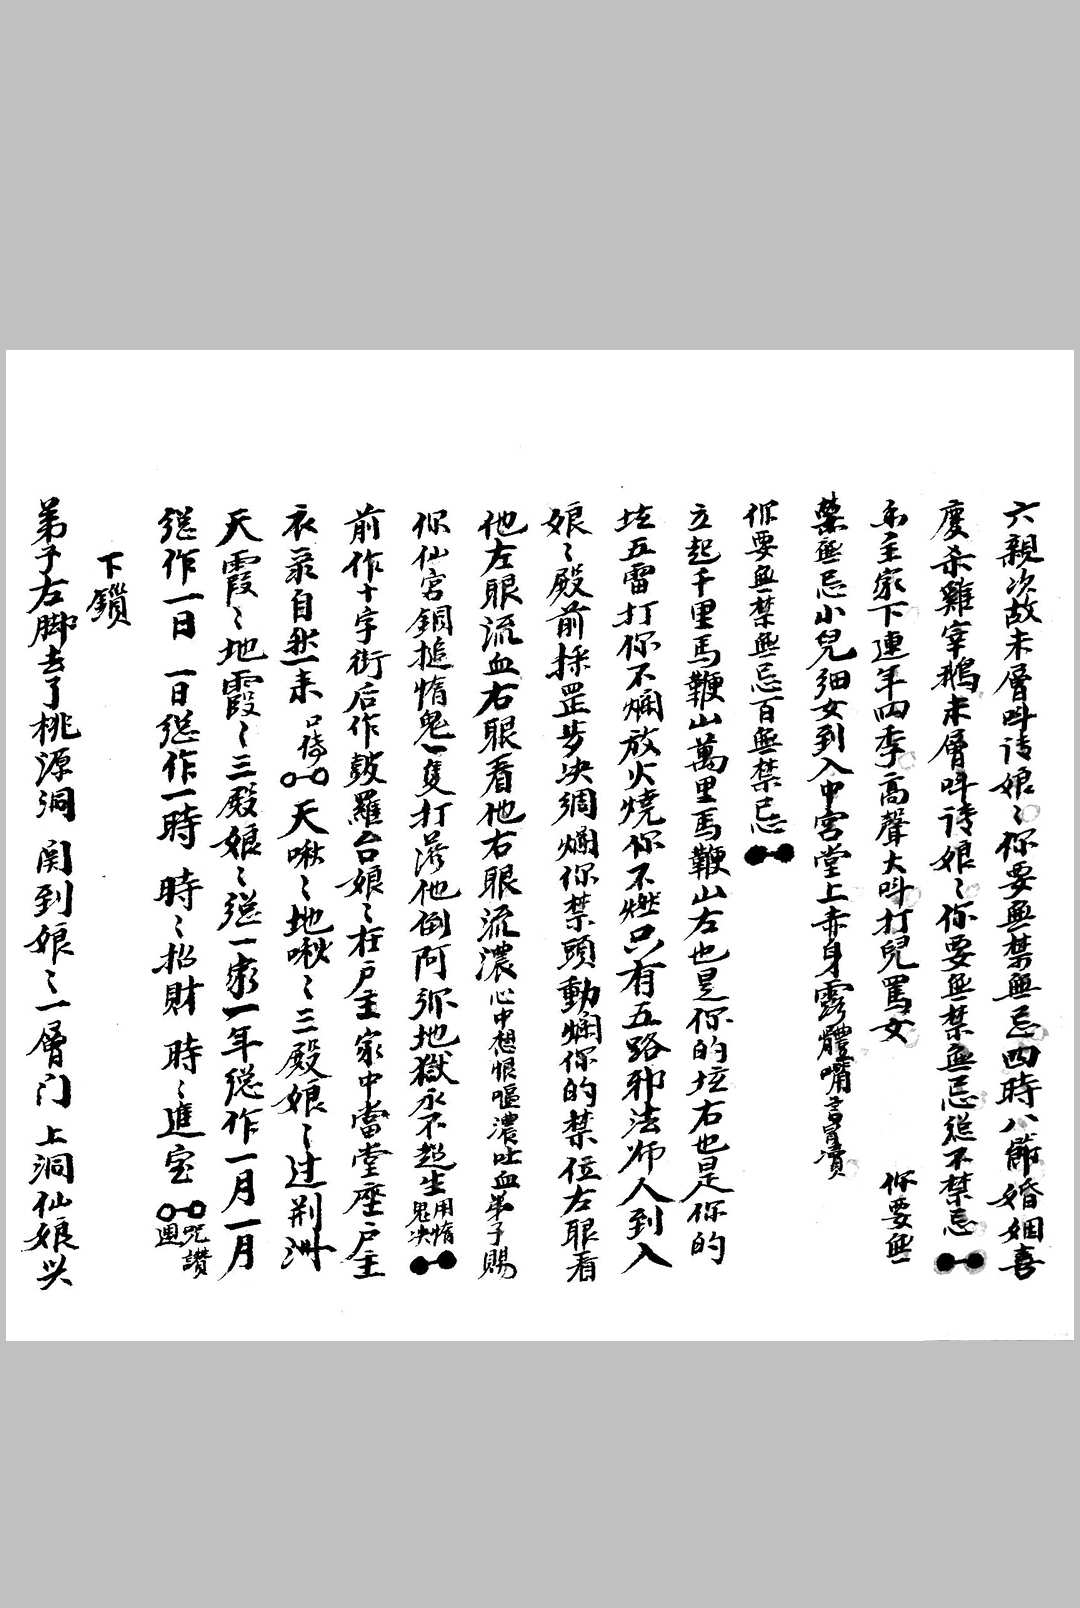 六親次故未層叫请娘〻你要無禁無忌四時八節婚姻喜
慶杀雞宰鵝未層叫请娘〻你要無禁無忌総不禁忌
主家下連年四季高聲大叫打兒罵女 你要無
禁無忌小兒细女到入中宫堂上赤身露體嘴言冒瀆
你要無禁無忌百無禁忌
立起千里馬鞭山萬里馬鞭山左也是你的坛右也是你的
坛五雷打你不爛放火燒你不燃只有五路邪法师人到入
娘〻殿前採罡步决綢爛你禁頭動爛你的禁位左眼看
他左眼流血右眼看他右眼流濃心中想恨嘔濃吐血弟子賜
你仙宫銅搥惰鬼一隻打落他倒阿弥地獄永不超生用惰鬼决
前作十字街后作鼓羅台娘〻在户主家中當堂座户主
衣录自然来 天啾〻地啾〻三殿娘〻过荆洲
天霞〻地霞〻三殿娘〻総一家一年総作一月一月
総作一日 一日総作一時 時〻招財 時〻進宝 咒讃
下鎖
弟子右脚去了桃源洞 関到娘〻一層门 上洞仙娘兴